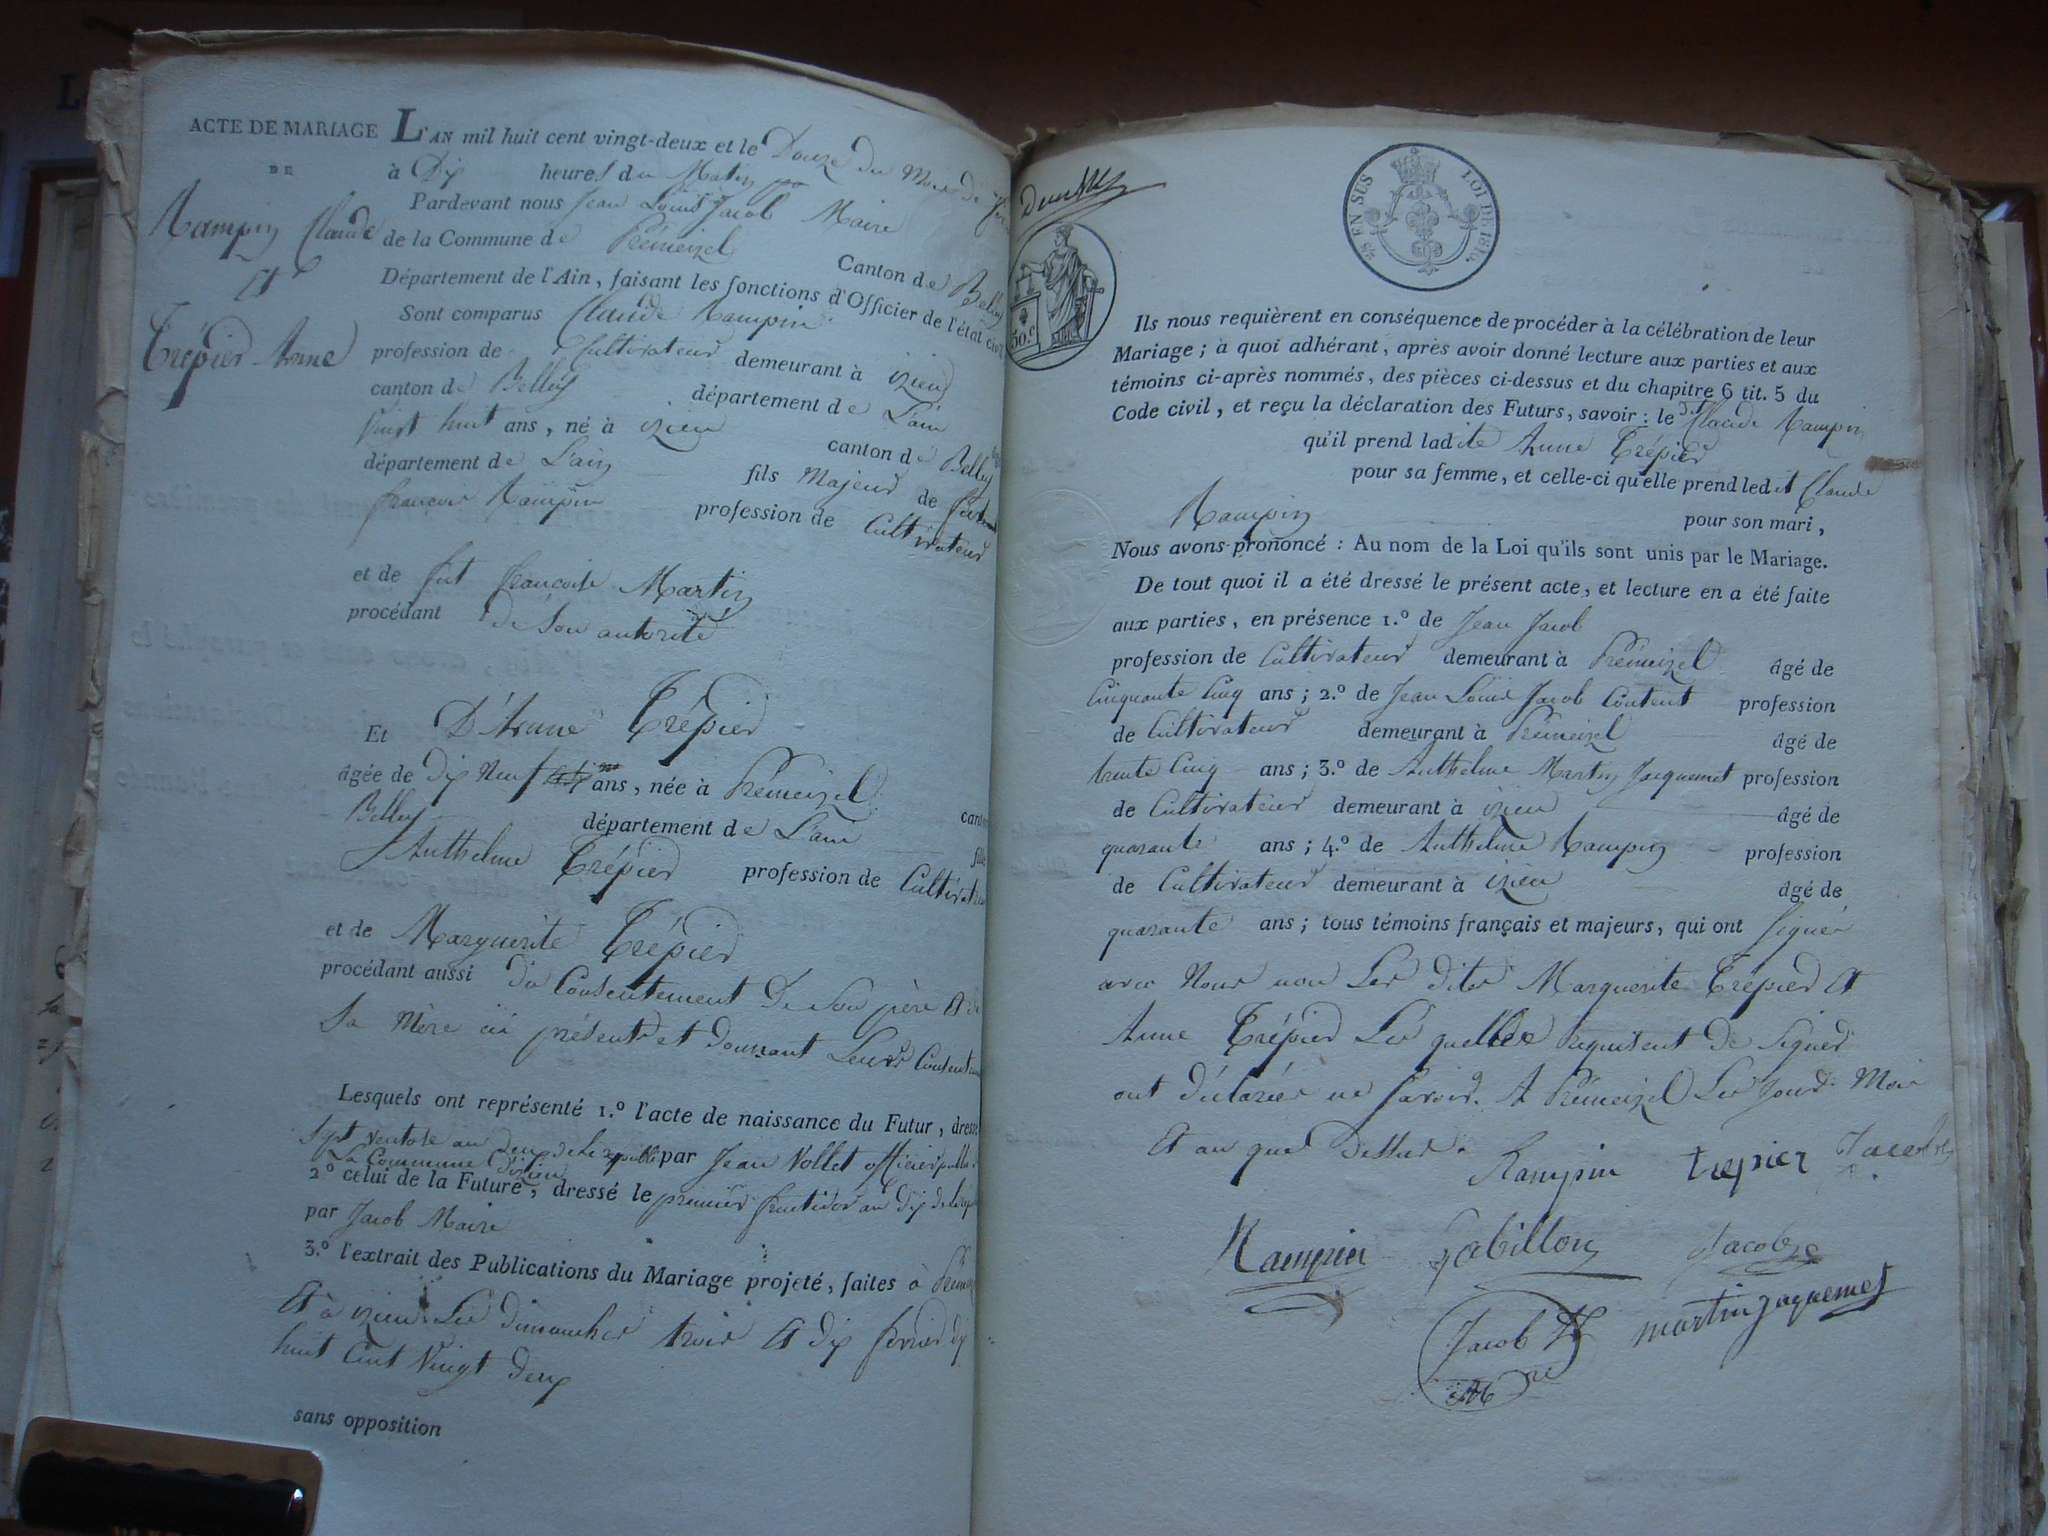 ACTE DE MARIAGE
DE
Rampin Claude
et
Trépier Anne
L'AN mil huit cent vingt-deux et le Douze du Mois de
à Dix heures du Matin
Pardevant nous Jean Louis Jacob Maire
de la Commune de Prémeizel Canton de Belley
Département de l'Ain, faisant les fonctions d'Officier de l'état civil
Sont comparus Claude Rampin
profession de Cultivateur demeurant à izieu
canton de Belley département de L'ain
vingt huit ans, né à izieu canton de Belley
département de L'ain fils Majeur de feu
françois Rampin profession de Cultivateur
et de fut francoise Martin
procédant de Son autorité
Et D'Anne Trépier
âgée de dix Neuf ans, née à Prémeizel
Belley département de L'ain
Anthelme Trépier profession de Cultivateur
et de Marguerite Trépier
procédant aussi du Consentement De Son père et de
Sa Mère ici présents et donnant Leurs Consent
Lesquels ont représenté 1.º l'acte de naissance du Futur, dressé
Sept Ventose an deux de la par Jean Vollet officier public
La Commune d'izieu
2º celui de la Future, dressé le premier fructidor an dix de la rép
par Jacob Maire
3.º l'extrait des Publications du Mariage projeté, faites à Prémeizel
et à izieu Les dimanches trois et dix février dix
huit Cent Vingt deux
sans opposition
EN SUS LOI DE 1816.
50.c
Ils nous requièrent en conséquence de procéder à la célébration de leur
Mariage; à quoi adhérant, après avoir donné lecture aux parties et aux
témoins ci-après nommés, des pièces ci-dessus et du chapitre 6 tit. 5 du
Code civil, et reçu la déclaration des Futurs, savoir: le dt Claude Rampin
qu'il prend ladite Anne Trépier
pour sa femme, et celle-ci qu'elle prend ledit Claude
Rampin pour son mari,
Nous avons prononcé: Au nom de la Loi qu'ils sont unis par le Mariage.
De tout quoi il a été dressé le présent acte, et lecture en a été faite
aux parties, en présence 1.º de Jean Jacob
profession de Cultivateur demeurant à Prémeizel âgé de
Cinquante Cinq ans; 2.º de Jean Louis Jacob Content profession
de Cultivateur demeurant à Prémeizel âgé de
trente Cinq ans; 3.º de Anthelme Martin Jacquemet profession
de Cultivateur demeurant à izieu âgé de
quarante ans; 4.º de Anthelme Rampin profession
de Cultivateur demeurant à izieu âgé de
quarante ans; tous témoins français et majeurs, qui ont Signér
avec Nous non Les dites Marguerite Trépier et
Anne Trépier Les quelles requisent de Signer
ont déclarées ne Savoir. A Prémeizel Les Jour Mois
et an que dessus.
Rampin trepier Jacob
Rampin Gabillon Jacob
Jacob martin jaquemet